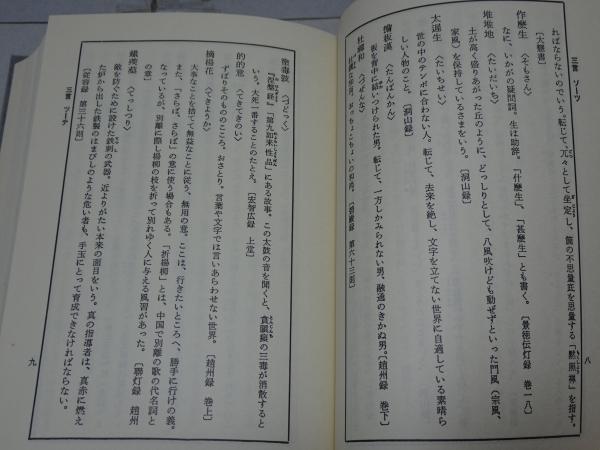 三言　ソーツ
ればならないのでいう。転じて、兀々として坐定し、箇の不思量底を思量する「黙照禅」を指す。
〔大慧書〕
作麼生〈そもさん〉
なに、いかがの疑問詞。生は助辞。「什麼生」、「甚麼生」とも書く。〔景徳伝灯録　巻一八〕
堆堆地〈たいだいち〉
土が高く盛りあがった丘のように、どっしりとして、八風吹けども動ぜずといった門風（宗風、
家風）を保持しているさまをいう。〔洞山録〕
太遅生〈たいちせい〉
世の中のテンポに合わない人。転じて、去来を絶し、文字を立てない世界に自適している素晴ら
しい人物のこと。〔洞山録〕
担板漢〈たんぱんかん〉
板を背中に結いつけられた男。転じて、一方しかみられない男、融通のきかぬ男。〔趙州録　巻下〕
杜撰和〈づざんな〉
〔碧巌録　第六十三則〕
八
塗毒鼓〈づどっく〉
『涅槃経』「第九如来性品」にある故事。この太鼓の音を聞くと、貪瞋癡の三毒が消散すると
いう。大死一番することのたとえ。〔宏智広録　上堂〕
的的意〈てきてきのい〉
ずばりそのもののこころ。おさとり。言葉や文字では言いあらわせない世界。〔趙州録　巻上〕
摘楊花〈てきようか〉
大事なことを捨てて無益なことに従う、無用の意。ここは、行きたいところへ、勝手に行けの義。
また、「さらば、さらば」の意に使う場合もある。「折楊柳」とは、中国で別離の歌の代名詞と
なっているが、別離に際し楊柳の枝を折って別れゆく人に与える風習があった。〔聯灯録　趙州
の章〕
鉄蒺藜〈てっしつり〉
敵を防ぐために設けた鉄刺の武器。近よりがたい本来の面目をいう。真の指導者は、真赤に燃え
た炉から出した鉄製のはまびしのような危い者も、手玉にとって育成できなければならない。
〔従容録　第三十六則〕
三言　ツーテ
九